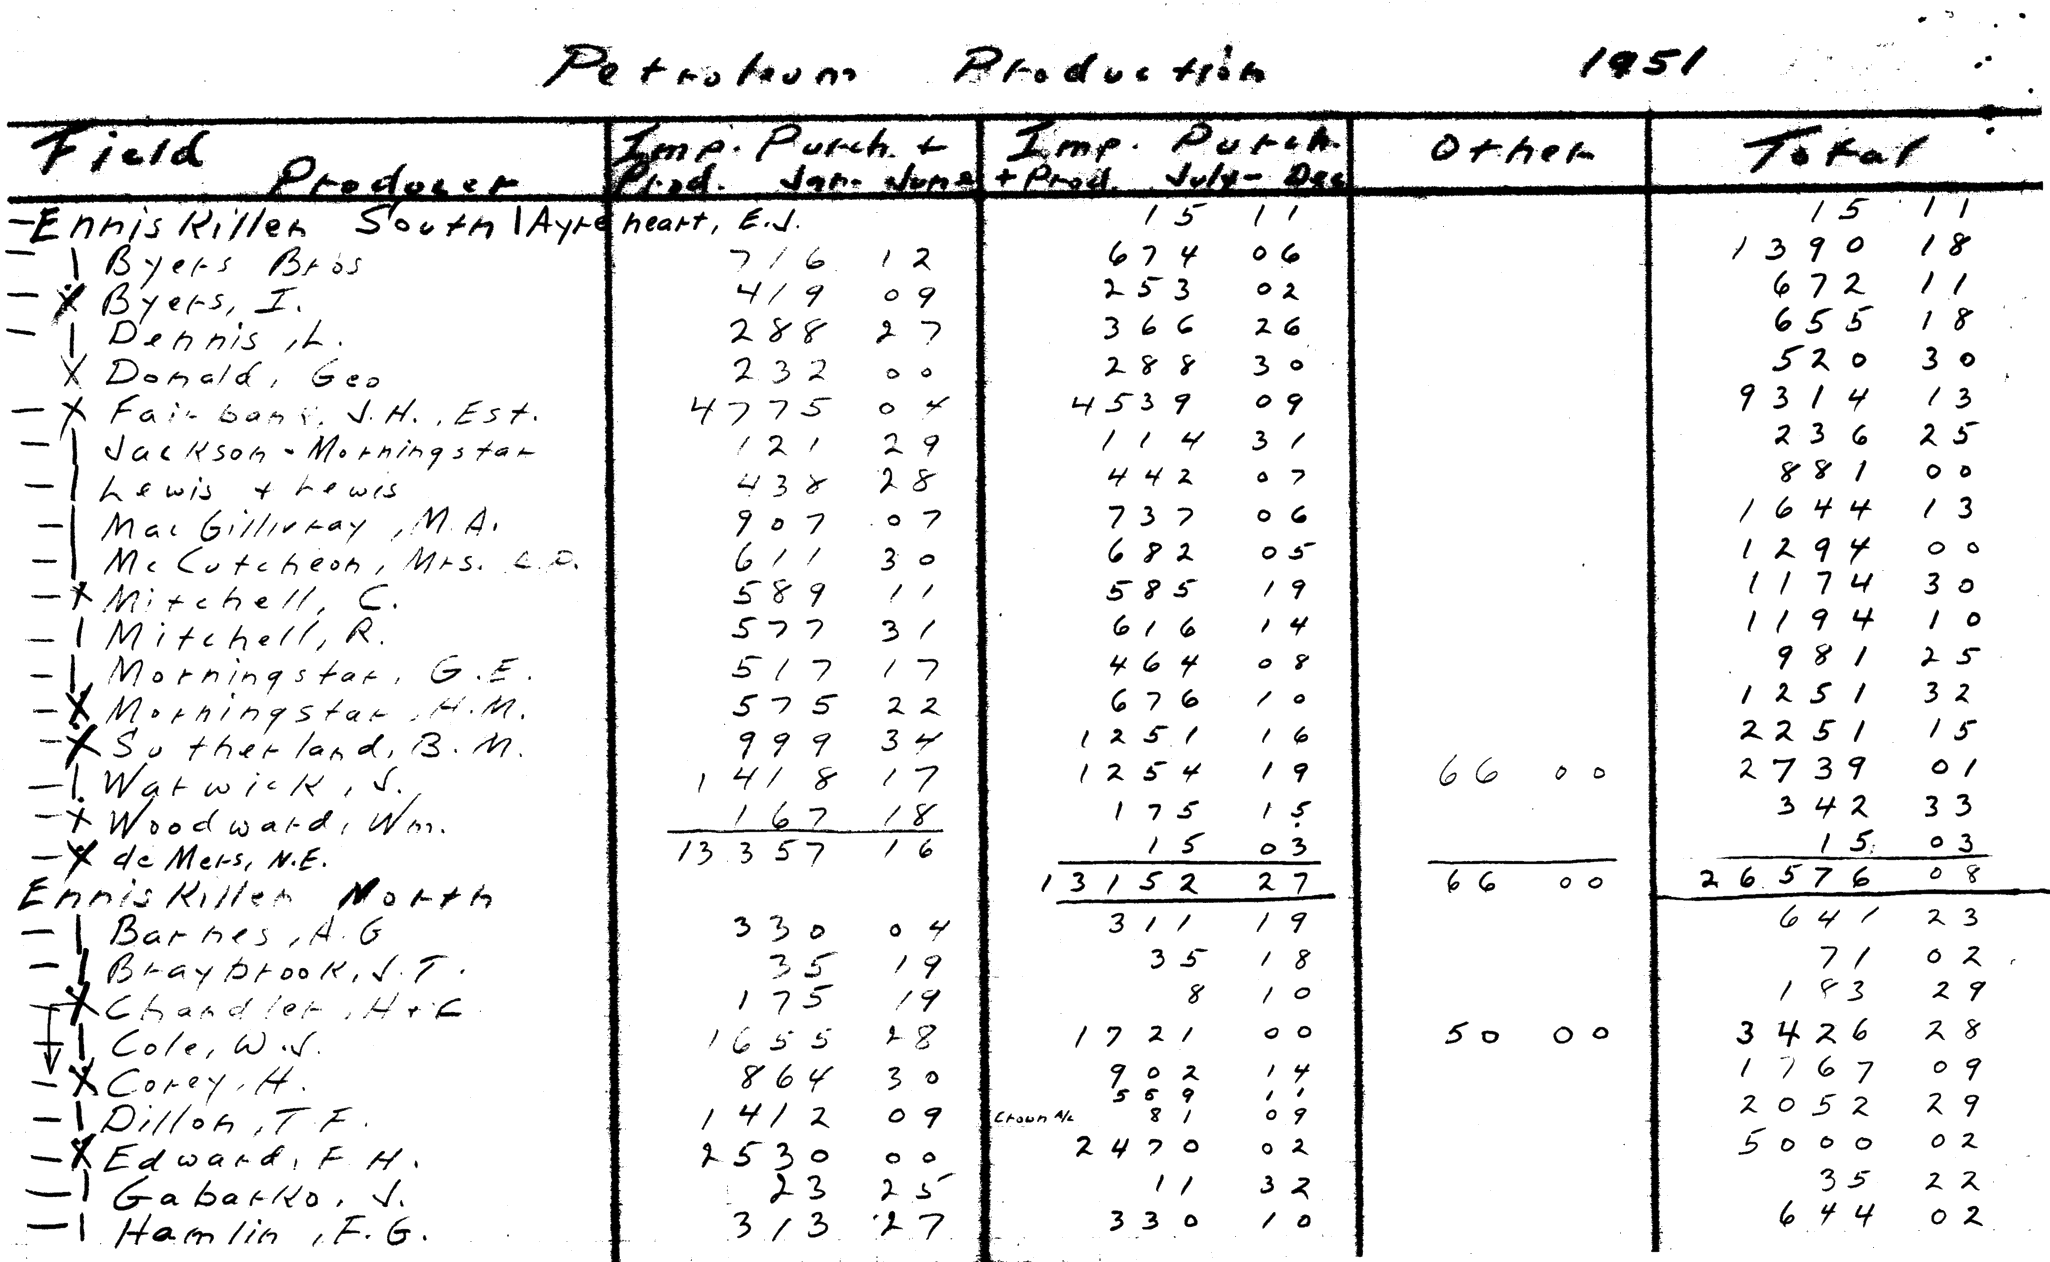 Petroleum Production 1951
Field Producer Imp. Purch. + Prod. Jan- June Imp. Purch. + Prod. July- Dec Other Total
- Ennis Killen South | Ayreheart, E.J. 15 11 15 11
- | Byers Bros 716 12 674 06 1390 18
- X Byers, I. 419 09 253 02 672 11
- | Dennis, L. 288 27 366 26 655 18
X Donald, Geo 232 00 288 30 520 30
- X Fairbank, J.H., Est. 4775 04 4539 09 9314 13
- | Jackson - Morningstar 121 29 114 31 236 25
- | Lewis + Lewis 438 28 442 07 881 00
- | MacGillivray, M.A. 907 07 737 06 1644 13
- | McCutcheon, Mrs. 611 30 682 05 1294 00
- X Mitchell, C. 589 11 585 19 1174 30
- | Mitchell, R. 577 31 616 14 1194 10
- | Morningstar, G.E. 517 17 464 08 981 25
- X Morningstar, H.M. 575 22 676 10 1251 32
- X Sutherland, B.M. 999 34 1251 16 2251 15
- | Warwick, J. 1418 17 1254 19 66 00 2739 01
- X Woodward, Wm. 167 18 175 15 342 33
- X de Mers, N.E. 13357 16 15 03 15 03
Ennis Killen North 13152 27 66 00 26576 08
- | Barnes, A.G 330 04 311 19 641 23
- | Braybrook, J.T. 35 19 35 18 71 02
X Chandler, H+C 175 19 8 10 183 29
| Cole, W.J. 1655 28 1721 00 50 00 3426 28
- X Corey, H. 864 30 902 14 1767 09
559 11
- | Dillon, T.F. 1412 09 Crown A/c 81 09 2052 29
- X Edward, F.H. 2530 00 2470 02 5000 02
- | Gabarko, J. 23 25 11 32 35 22
- | Hamlin, F.G. 313 27 330 10 644 02